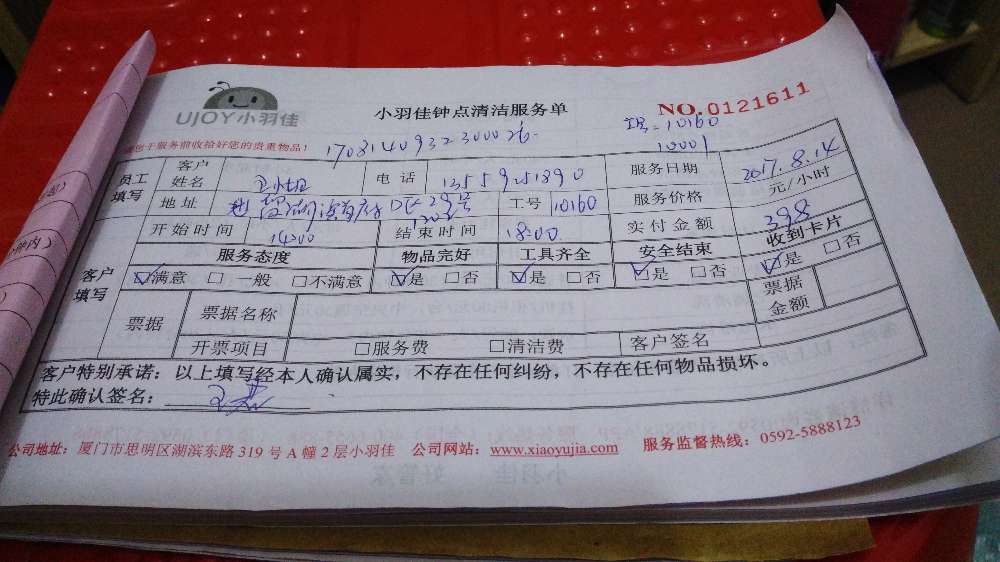 UJOY小羽佳
小羽佳钟点清洁服务单
NO.0121611
于服务前收拾好您的贵重物品!
工号=10160
10001
员工填写 客户姓名 王小姐 电话 服务日期 2017.8.14
地址 29号 工号 10160 服务价格 元/小时
开始时间 14:00 结束时间 18:00 实付金额 398
客户填写 服务态度 物品完好 工具齐全 安全结束 收到卡片
☑满意 □一般 □不满意 ☑是 □否 ☑是 □否 ☑是 □否 ☑是 □否
票据 票据名称 票据金额
开票项目 □服务费 □清洁费 客户签名
客户特别承诺:以上填写经本人确认属实,不存在任何纠纷,不存在任何物品损坏。
特此确认签名:
公司地址:厦门市思明区湖滨东路 319 号 A 幢 2 层小羽佳 公司网站:www.xiaoyujia.com 服务监督热线:0592-5888123